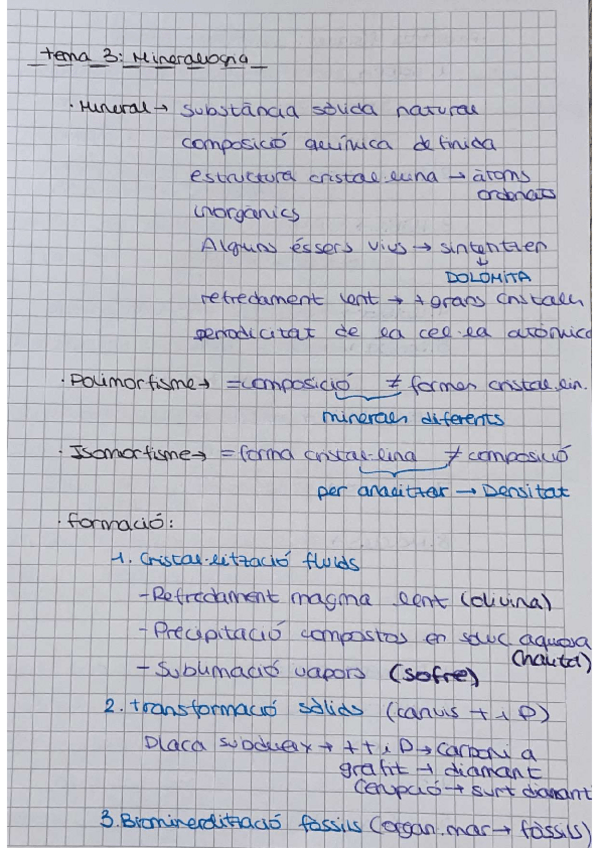 tema 3: Mineralogia
· Mineral → substància sòlida natural
composició química definida
estructura cristal·lina → àtoms
ordenats
inorgànics
Alguns éssers vius → sintentizen
↓
DOLOMITA
refredament lent → + grans cristalls
periodicitat de la cel·la atòmica
· Polimorfisme → = composició ≠ formes cristal·lin.
minerals diferents
· Isomorfisme → = forma cristal·lina ≠ composició
per analitzar → Densitat
· formació:
1. Cristal·lització fluids
- Refredament magma lent (olivina)
- Precipitació compostos en soluc aquosa
(halita)
- Sublimació vapors (sofre)
2. transformació sòlids (canvis t i P)
Placa subdueix → + t i P → carboni a
grafit → diamant
(erupció → surt diamant
3. Biominerdlització fòssils (organ. mar → fòssils)